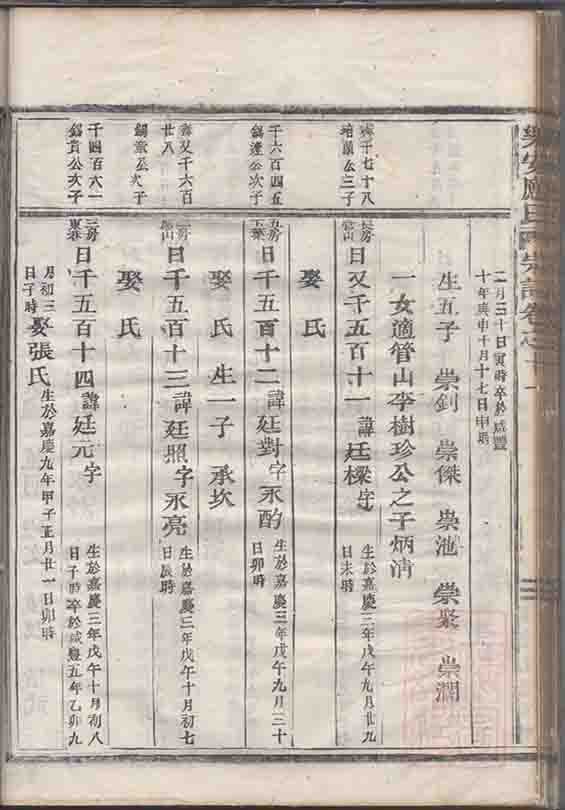 樂安應氏宗譜卷之十一
二月三十日寅時卒於咸豐
十年庚申十月十七日申時
生五子 崇釗 崇傑 崇池 崇聚 崇潤
一女適管山李樹珍公之子炳清
千七十八
公三子
長房
曰又千五百十一諱廷樑字
生於嘉慶三年戊午九月廿九
日未時
娶氏
千六百四五
公次子
五房
曰千五百十二諱廷對字永酌
生於嘉慶三年戊午九月三十
日卯時
娶氏生一子 承坎
又千六百
廿八
錫章公次子
曰千五百十三諱廷照字永亮
生於嘉慶三年戊午十月初七
日辰時
娶氏
千四百六一
錫貴公次子
三房
曰千五百十四諱廷元字
生於嘉慶三年戊午十月初八
日子時卒於咸豐五年乙卯九
月初三
日子時
娶張氏
生於嘉慶九年甲子正月廿一日卯時